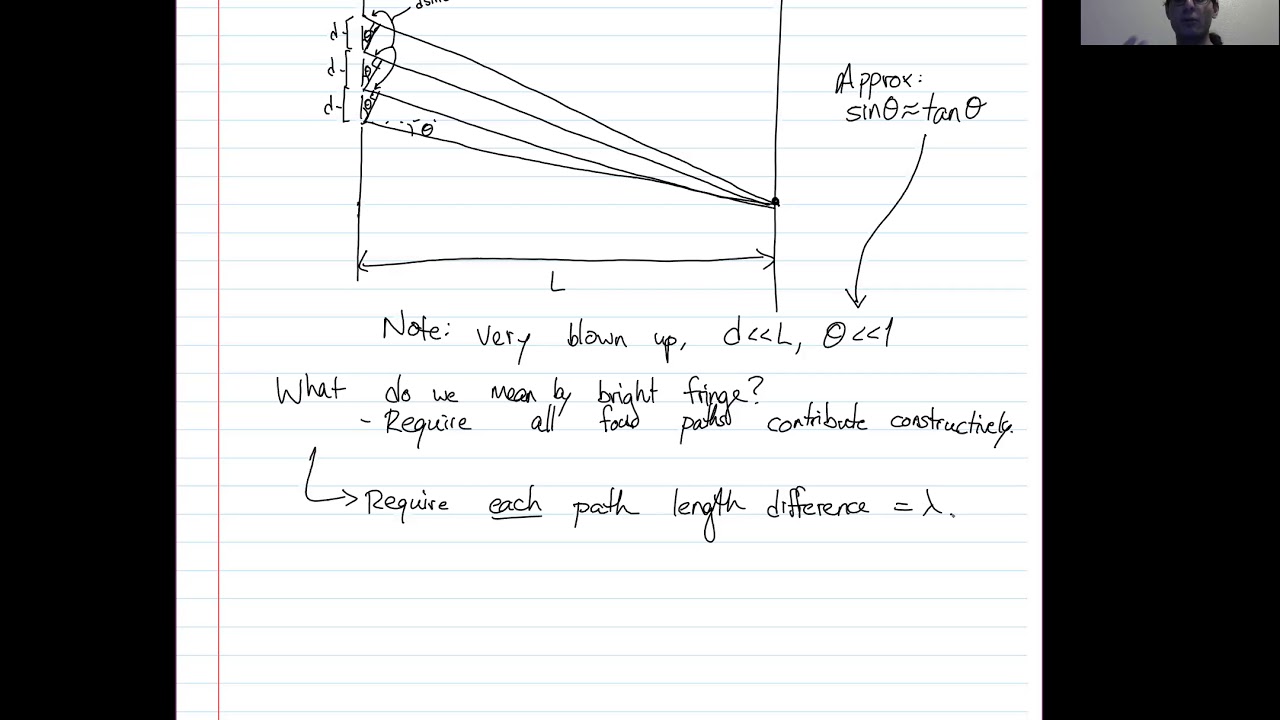 dsin
d
θ
d
θ
d
θ
θ
Approx:
sinθ≈tanθ
L
Note: very blown up, d<<L, θ<<1
What do we mean by bright fringe?
- Require all four paths contribute constructively.
Require each path length difference = λ.